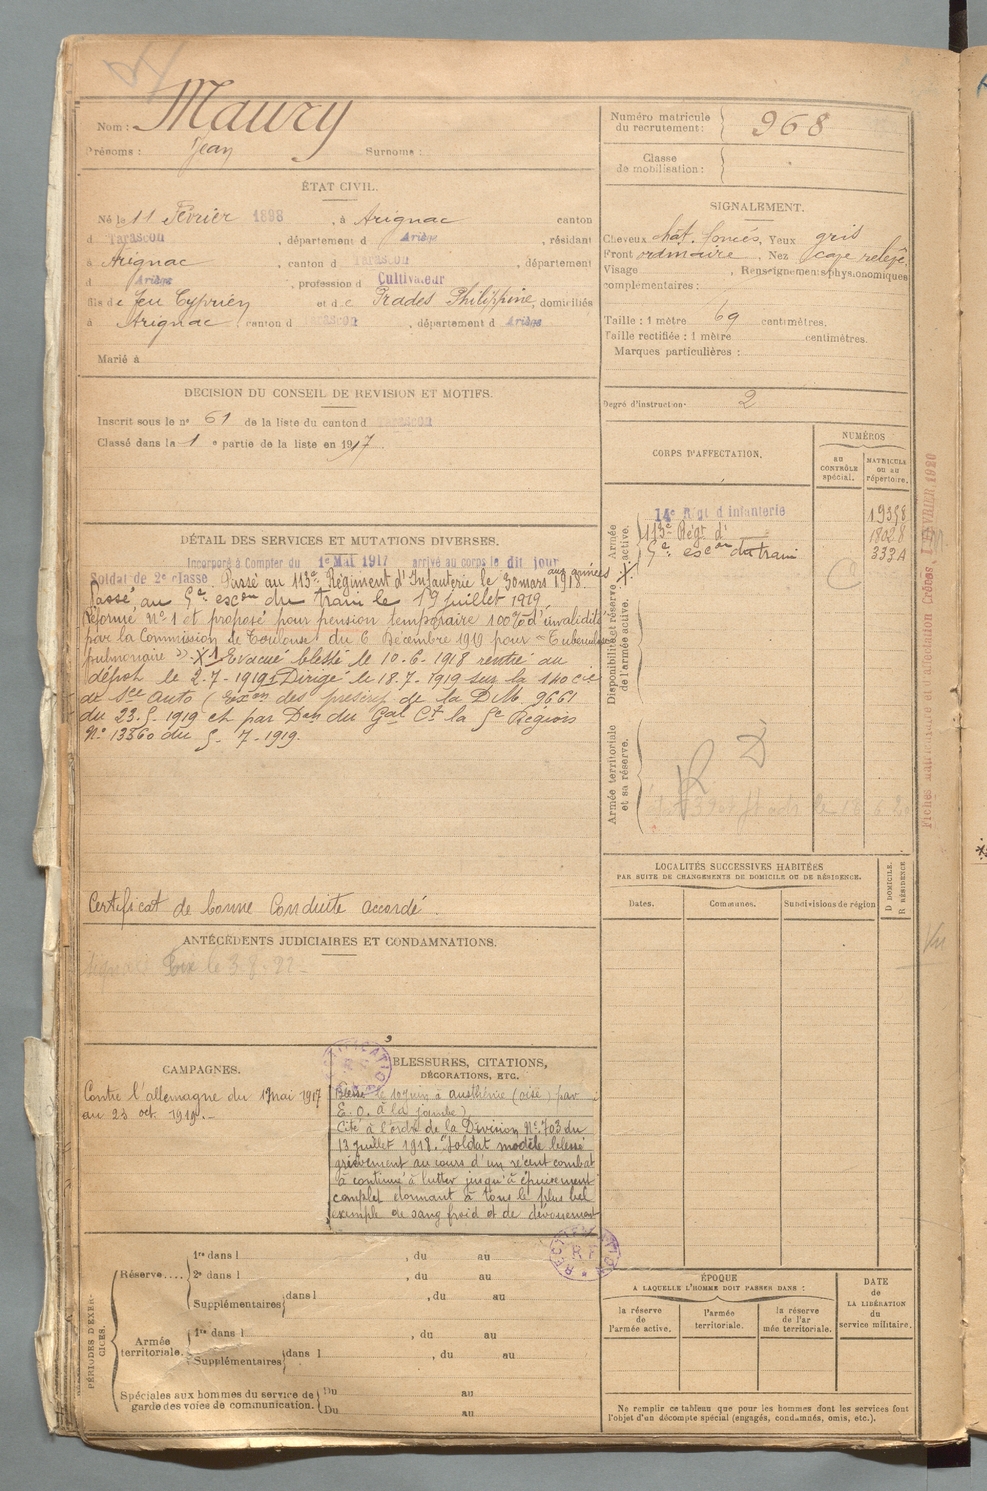 Nom : Maury
Prénoms : Jean Surnoms :
ÉTAT CIVIL.
Né le 11 Février 1898, à Arignac canton
d Tarascon, département d Ariège, résidant
à Arignac, canton d Tarascon, département
d Ariège, profession d Cultivateur
fils de feu Cyprien et de Prades Philippine, domiciliés
à Arignac, canton d Tarascon, département d Ariège
Marié à
DÉCISION DU CONSEIL DE REVISION ET MOTIFS.
Inscrit sous le nº 61 de la liste du canton d Tarascon
Classé dans la 1 e partie de la liste en 1917
DÉTAIL DES SERVICES ET MUTATIONS DIVERSES.
Incorporé à Compter du 1er Mai 1917 arrivé au corps le dit jour
Soldat de 2e classe. Passé au 113e Régiment d'Infanterie le 30 mars 1918. aux armées X.
Passé au 5e escon du train le 19 juillet 1919
Réformé Nº 1 et proposé pour pension temporaire 100% d'invalidité
par la Commission de Toulouse du 6 Décembre 1919 pour "Tuberculose
pulmonaire". X 1 Evacué blessé le 10-6-1918 rentré au
dépot le 2-7-1919 Dirigé le 18-7-1919 sur la 140 Cie
de Sce auto (Exon des prescrip de la D.M. 9661
du 23-5-1919 et par Don du Gal Ct la 5e Région
Nº 13360 du 5-7-1919.
Certificat de bonne Conduite accordé.
ANTÉCÉDENTS JUDICIAIRES ET CONDAMNATIONS.
Foix le 3-8-22-
CAMPAGNES.
Contre l'allemagne du 1 mai 1917
au 23 oct. 1919.-
RECTIFICATION R F
BLESSURES, CITATIONS,
DÉCORATIONS, ETC.
Blessé le 10 juin à austhénie (oise) par
E. O. à la jambe)
Cité à l'ordre de la Division Nº 703 du
13 juillet 1918. "Soldat modèle blessé
grièvement au cours d'un récent combat
à continué à lutter jusqu'à épuisement
complet donnant à tous le plus bel
exemple de sang froid et de dévouement
RECTIFICATION R F
PÉRIODES D'EXERCICES.
Réserve....
1re dans l , du au
2e dans l , du au
Supplémentaires dans l , du au
Armée territoriale.
1re dans l , du au
Supplémentaires dans l , du au
Spéciales aux hommes du service de garde des voies de communication.
Du au
Du au
Numéro matricule du recrutement : 968
Classe de mobilisation :
SIGNALEMENT.
Cheveux chat. foncés, Yeux gris
Front ordinaire, Nez cave relevé,
Visage , Renseignements physionomiques
complémentaires :
Taille : 1 mètre 69 centimètres.
Taille rectifiée : 1 mètre centimètres.
Marques particulières :
Degré d'instruction 2
CORPS D'AFFECTATION.
NUMÉROS
AU CONTRÔLE spécial.
MATRICULE OU AU répertoire.
Armée active.
14e Régt d infanterie 19358
113e Régt d' 1828
5e escon du train 333A
Disponibilité et réserve de l'armée active.
Armée territoriale et sa réserve.
LOCALITÉS SUCCESSIVES HABITÉES
PAR SUITE DE CHANGEMENTS DE DOMICILE OU DE RÉSIDENCE.
Dates.
Communes.
Subdivisions de région
D DOMICILE.
R RÉSIDENCE
ÉPOQUE
A LAQUELLE L'HOMME DOIT PASSER DANS :
la réserve de l'armée active.
l'armée territoriale.
la réserve de l'ar mée territoriale.
DATE de LA LIBÉRATION du service militaire.
Ne remplir ce tableau que pour les hommes dont les services font
l'objet d'un décompte spécial (engagés, condamnés, omis, etc.).
Fiches matricule et d'affectation Créées, FÉVRIER 1920
Vu